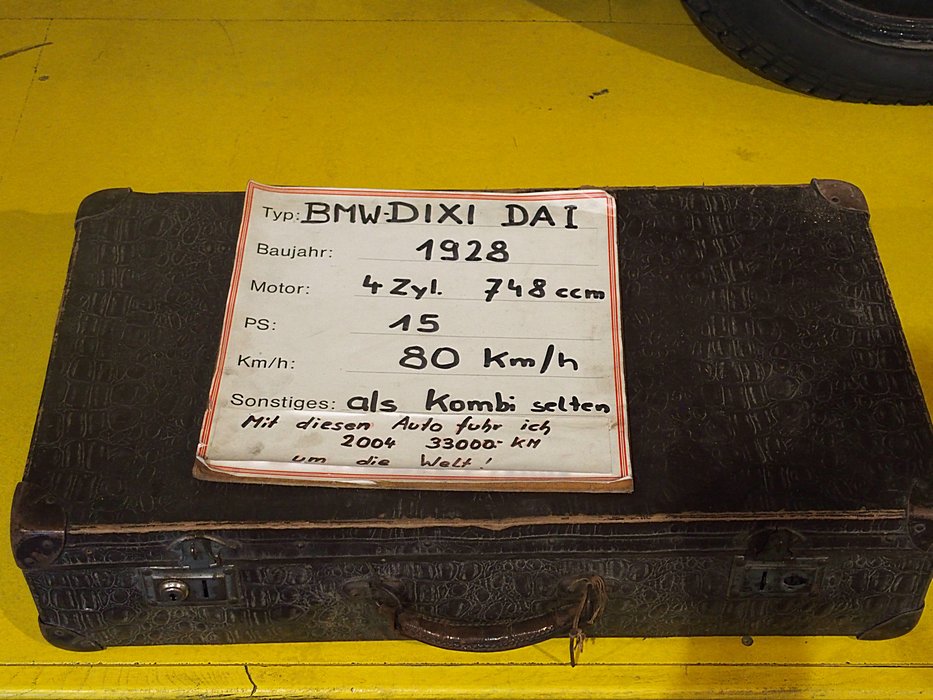 Typ: BMW-DIXI DAI
Baujahr: 1928
Motor: 4 Zyl. 748 ccm
PS: 15
Km/h: 80 Km/h
Sonstiges: als Kombi selten
Mit diesen Auto fuhr ich
2004 33000.- KM
um die Welt!